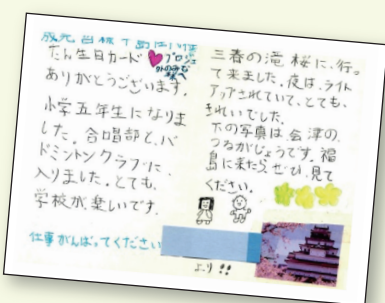 たん生日カード
ありがとうございます。
小学五年生になりま
した。合唱部と、バ
ドミントンクラブに、
入りました。とても、
学校が楽しいです。
仕事がんばってください
三春の滝桜に、行っ
て来ました。夜は、ライト
アップされていて、とても、
きれいでした。
下の写真は会津の、
つるがじょうです。福
島に来たら、ぜひ、見て
ください。
より!!